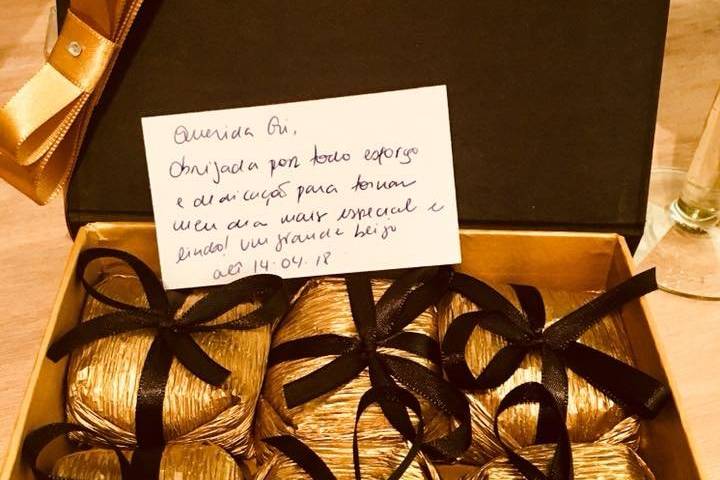 Querida Gi,
Obrigada por todo esforço
e dedicação para tornar
meu dia mais especial e
lindo! um grande beijo
até 14.04.18